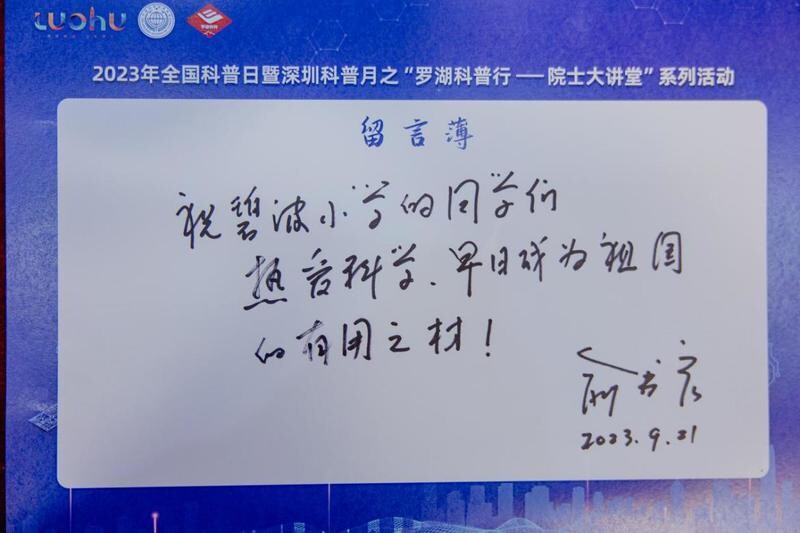 luohu
2023年全国科普日暨深圳科普月之“罗湖科普行——院士大讲堂”系列活动
留言薄
祝碧波小学的同学们
热爱科学、早日成为祖国
的有用之材!
俞书宏
2023.9.21